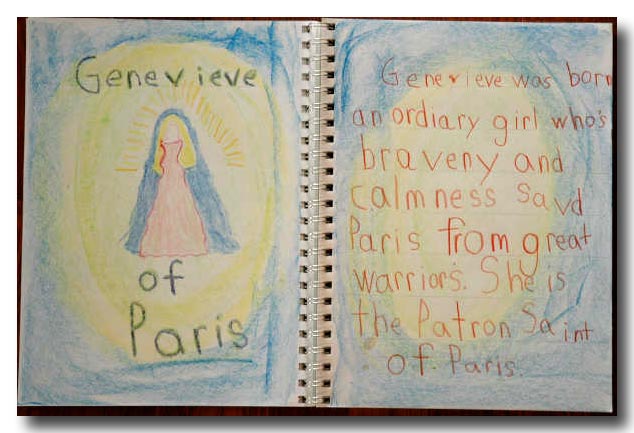 Genevieve
of
Paris
Genevieve was born
an ordiary girl who's
braveny and
calmness savd
Paris from great
warriors. She is
the Patron Saint
of Paris.